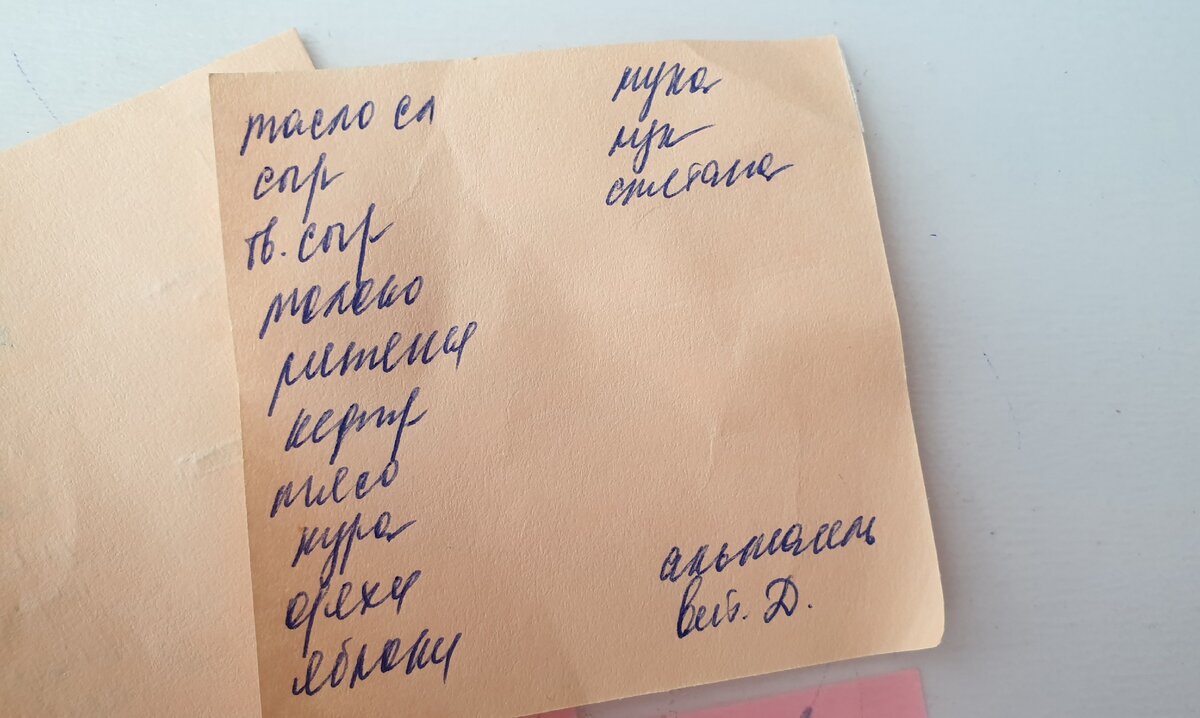 масло сл
сыр
тв. сыр
молоко
кефир
мясо
кура
орехи
яблоки
мука
лук
сметана
альмагель
вит. Д.